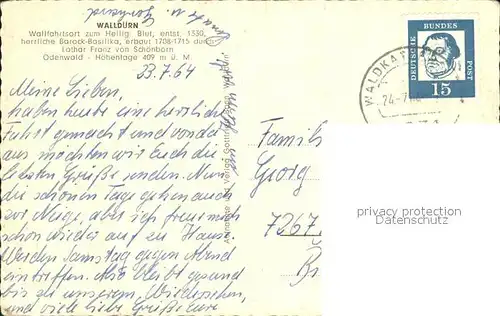 WALLDÜRN
Wallfahrtsort zum Heilig. Blut, entst. 1330,
herrliche Barock-Basilika, erbaut 1708-1715 durch
Lothar Franz von Schönborn
Odenwald - Höhenlage 409 m ü. M.
23.7.64
Meine Lieben,
haben heute eine herrliche
Fahrt gemacht und von da
aus möchten wir Euch die
liebsten Grüße senden. Nun
die schönen Tage gehen auch
zur Neige, aber ich freue mich
schon wieder auf zu Hause
Werden Samstag gegen Abend
eintreffen. Also bleibt gesund
bis zu unserem Wiedersehen,
und viele liebe Grüße Eure
DEUTSCHE BUNDES POST
15
Familie
Georg
7267
privacy protection
watermark